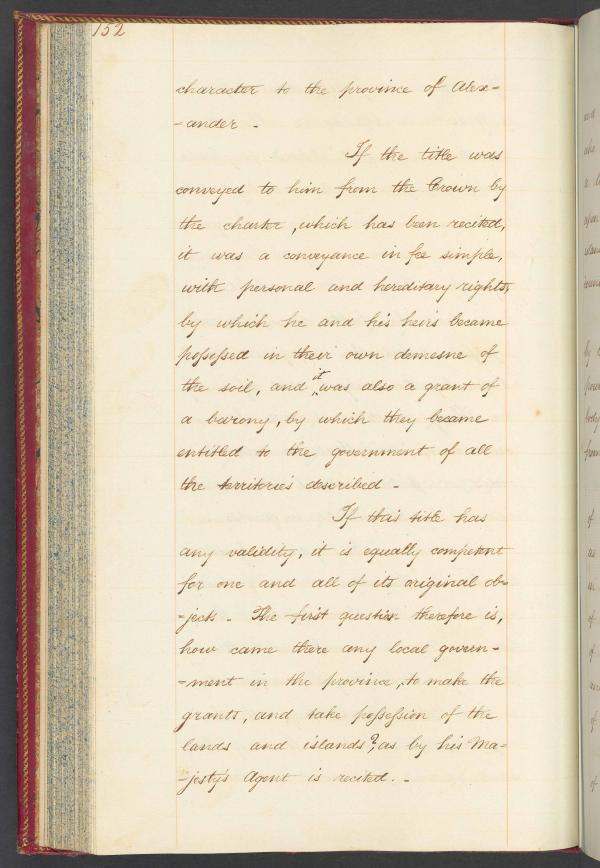 152
character to the province of Alex-
-ander -
If the title was
conveyed to him from the Crown by
the charter, which has been recited,
it was a conveyance in fee simple,
with personal and hereditary rights,
by which he and his heirs became
possessed in their own demesne of
the soil, and it was also a grant of
a barony, by which they became
entitled to the government of all
the territories described -
If this title has
any validity, it is equally competent
for one and all of its original ob-
-jects - The first question therefore is,
how came there any local govern-
-ment in the province, to make the
grants, and take possession of the
lands and islands?, as by his Ma-
-jesty's Agent is recited. -